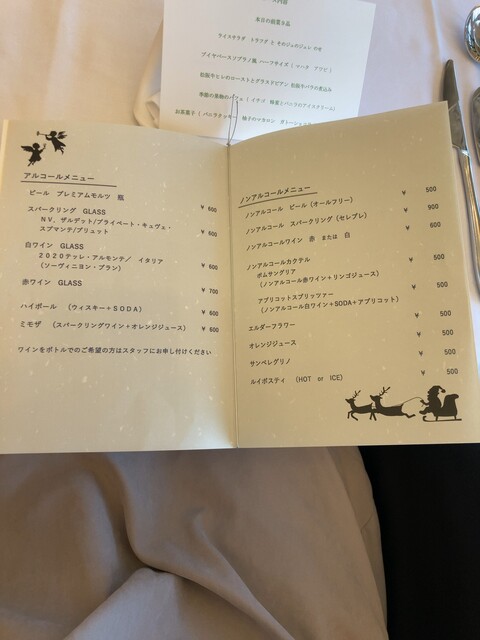 ス内容
本日の前菜3品
ライスサラダ トラフグ と そのジュのジュレ のせ
ブイヤベースソプラノ風 ハーフサイズ ( マハタ アワビ )
松阪牛ヒレのローストとグリルドビアン 松阪牛バラの煮込み
季節の果物の
( イチゴ 蜂蜜とバニラのアイスクリーム)
お茶菓子 ( バニラクッキー 柚子のマカロン ガトーショコ
アルコールメニュー
ビール プレミアムモルツ 瓶 ¥ 600
スパークリング GLASS
NV.ザルデット/プライベート・キュヴェ・ ¥ 600
スプマンテ/ブリュット
白ワイン GLASS
2020テッレ・アルモンテ/ イタリア ¥ 600
(ソーヴィニヨン・ブラン)
赤ワイン GLASS ¥ 700
ハイボール (ウィスキー+SODA) ¥ 600
ミモザ (スパークリングワイン+オレンジジュース) ¥ 600
ワインをボトルでのご希望の方はスタッフにお申し付けください
ノンアルコールメニュー
ノンアルコール ビール(オールフリー) ¥ 500
ノンアルコール スパークリング(セレブレ) ¥ 900
ノンアルコールワイン 赤 または 白 ¥ 600
ノンアルコールカクテル
ポムサングリア ¥ 500
(ノンアルコール赤ワイン+リンゴジュース)
アプリコットスプリッツァー ¥ 500
(ノンアルコール白ワイン+SODA+アプリコット)
エルダーフラワー ¥ 500
オレンジジュース ¥ 500
サンペレグリノ ¥ 500
ルイボスティ (HOT or ICE) ¥ 500